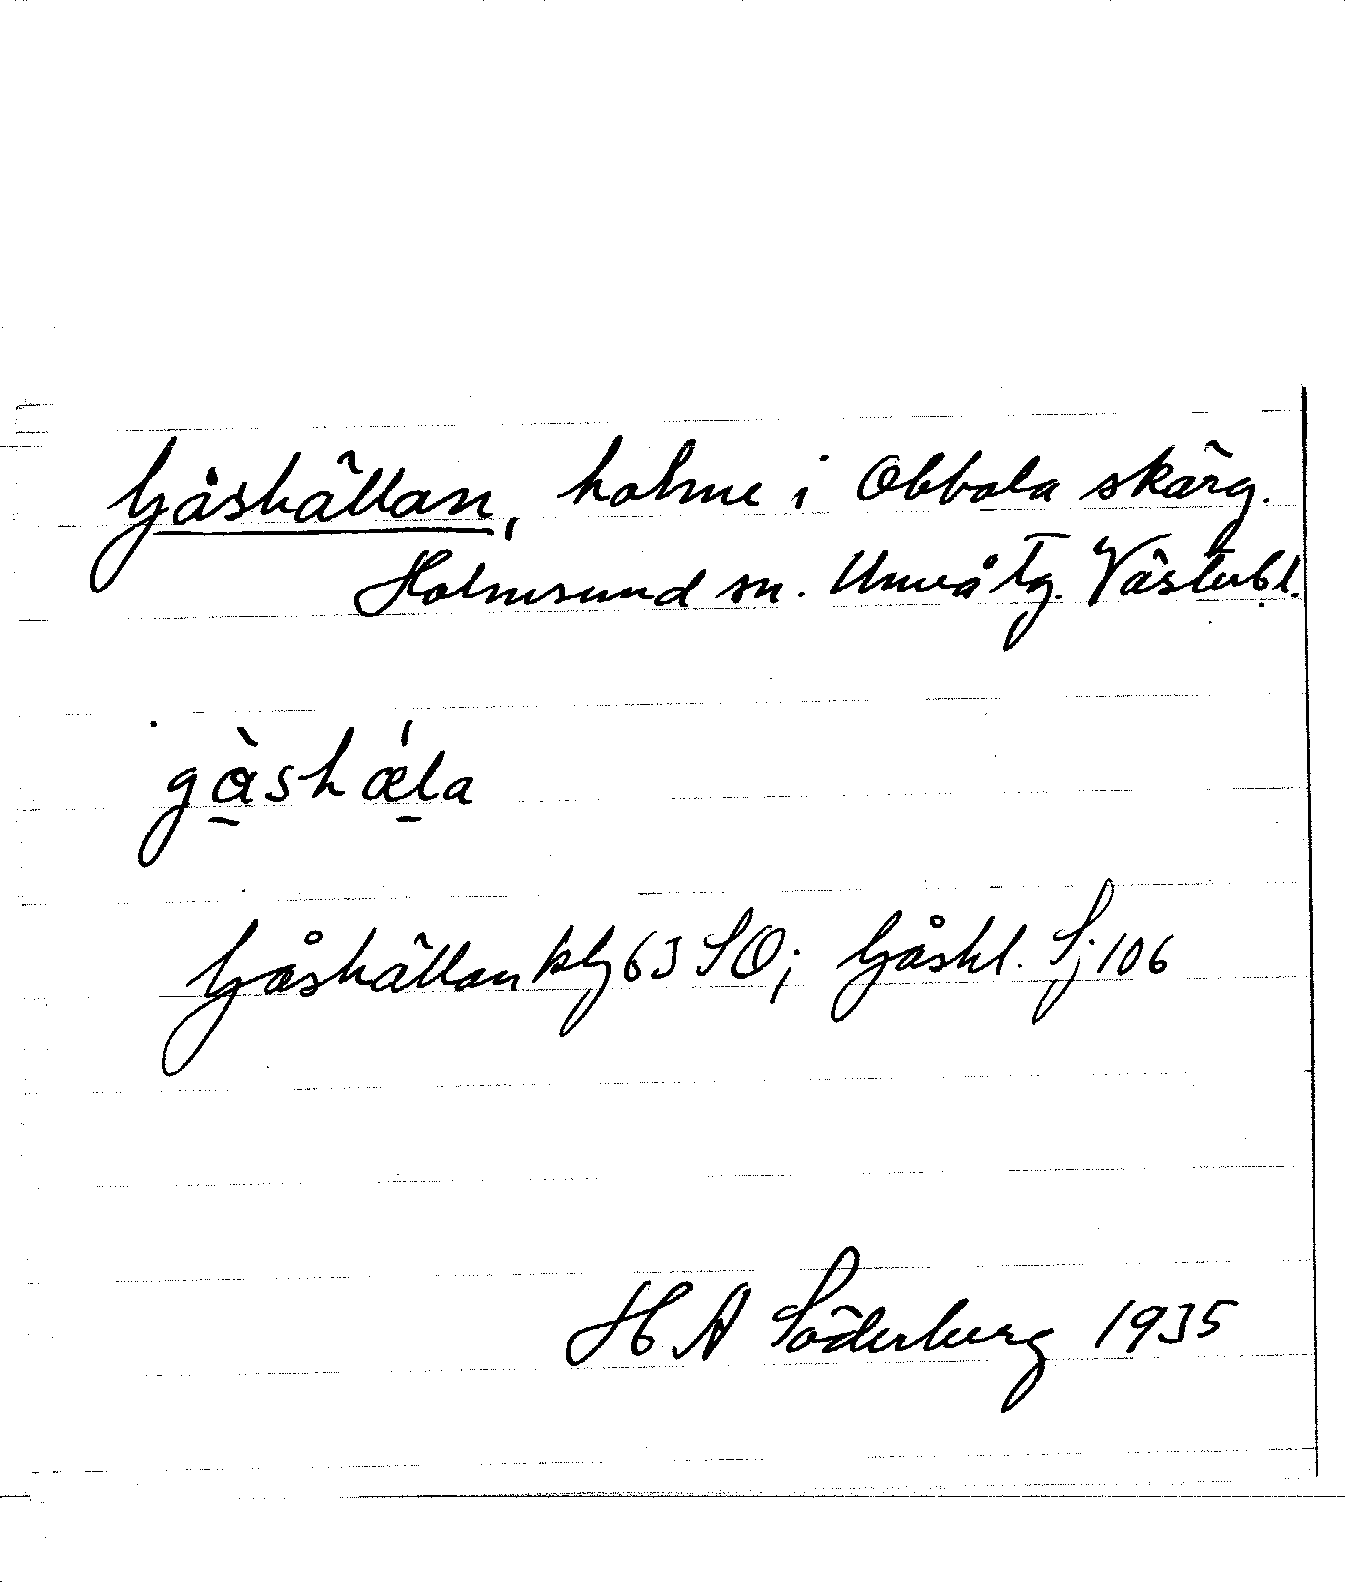 Gåshällan, holme i Obbola skärg.
Holmsund sn. Umeå tg. Västerbl.
gàshǽla
Gåshällan kbl 63 SO; Gåshl. Sj 106
H A Söderberg 1935